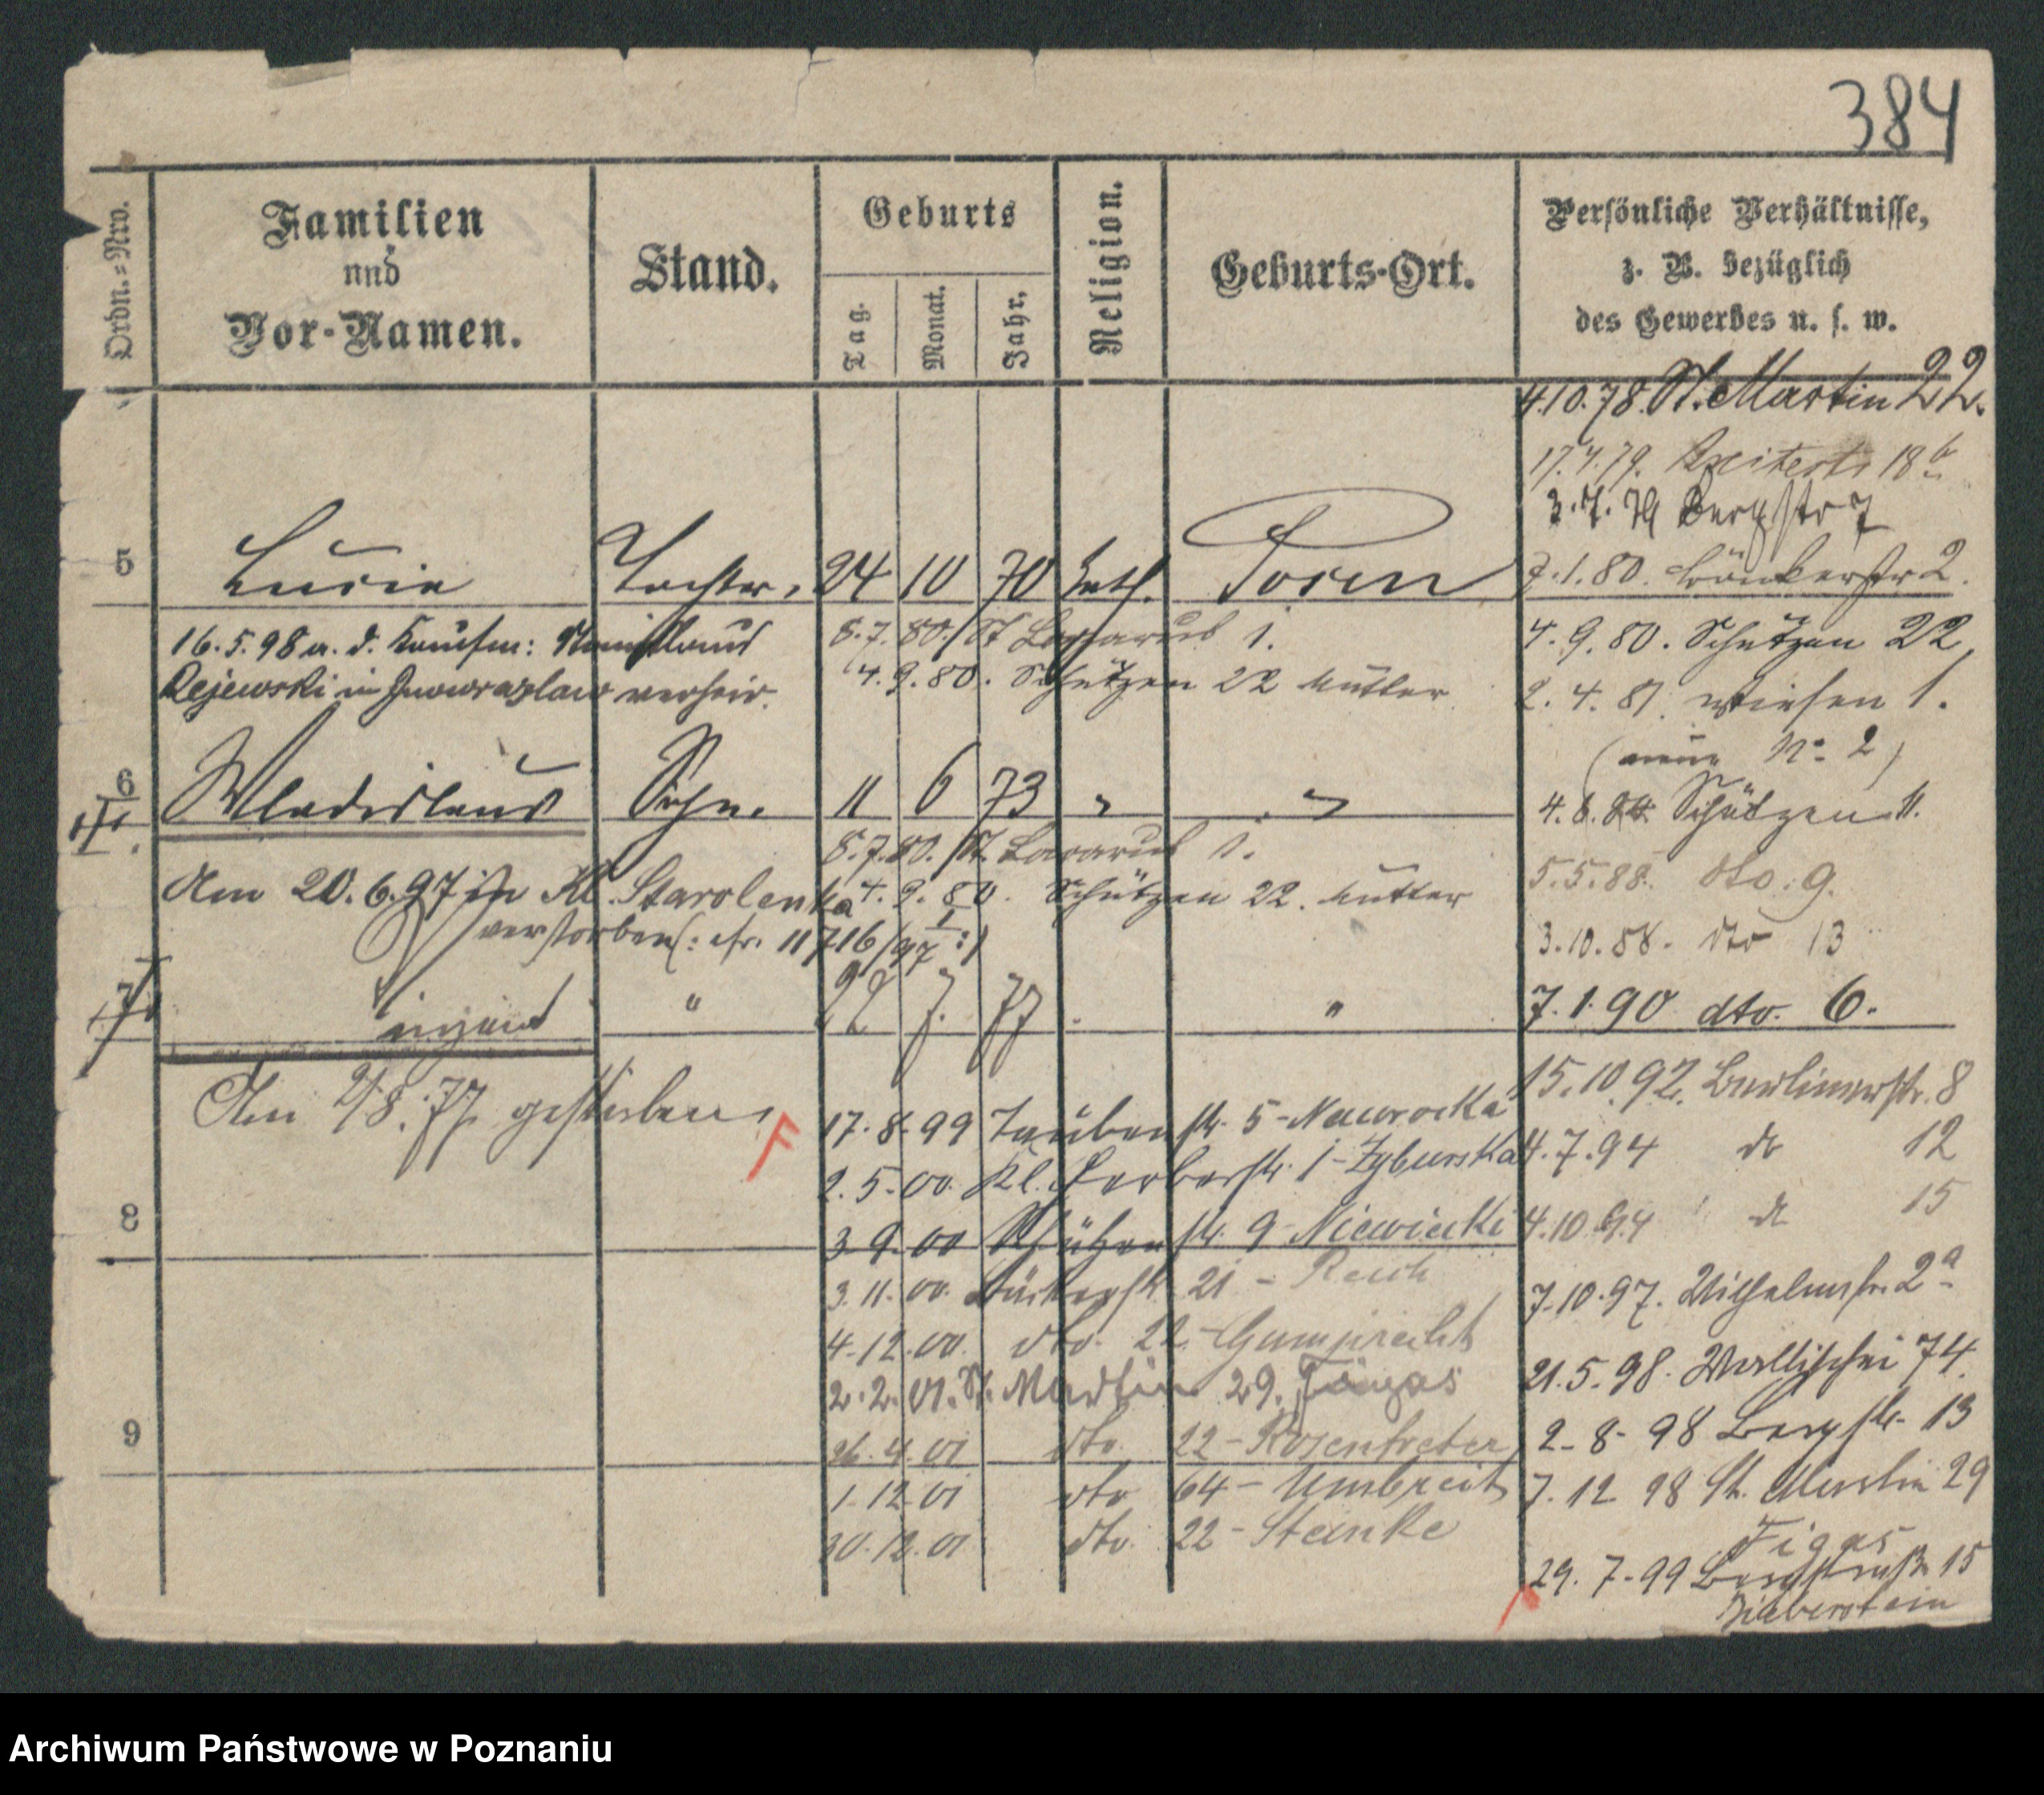 384
Ordn.=Nro.
Familien
und
Vor-Namen.
Stand.
Geburts
Tag.
Monat.
Jahr.
Religion.
Geburts-Ort.
Persönliche Verhältnisse,
z. B. bezüglich
des Gewerbes u. s. w.
4.10.78. St. Martin 22.
17.4.79. 18b
3.7.79 Bergstr 7
5 Lucie Tochter, 24 10 70 kath. Posen
7.1.80. Bäckerstr 2.
16.5.98 a. d. Kaufm: Stanislaus
Rejewski in Inowrazlaw verheir.
8.7.80. St Lazarus 1.
4.9.80. Schützen 22 Mutter
4.9.80. Schützen 22
2.4.81. Wiesen 1.
(neue No 2)
6 Wladislaus Sohn. 11 6 73 " "
4.6.84 Schützen 11.
8.7.80. St. Lazarus 1.
Am 20.6.97 in Kl. Starolenka
verstorben (: cfr. 11716/97 :)
4.9.80. Schützen 22. Mutter
5.5.88. dto. 9.
3.10.88. dto 13
7 ungen " 22 7. 77 . "
7.1.90 dto. 6.
Am 2/8.77 gestorben
15.10.92. Berlinerstr. 8
17.8.99 Taubenstr. 5 - Nawrocka
4.7.94 do 12
2.5.00. Kl. Gerberstr. 1 - Zyburska
8
4.10.94 do 15
3.9.00 Schützenstr. 9 - Niewiecki
3.11.00. Bäckerstr. 21 - Reich
7.10.97. Wilhelmstr. 2a
4.12.00. dto. 22 - Gumprecht
21.5.98. Wallischei 74.
2.2.01. St. Martin 29. Figas
9
2-8-98 Bergstr. 13
26.4.01 dto. 22 - Rosentreter
7.12.98 St. Martin 29
Figas
1.12.01 dto 64 - Umbreit
30.12.01 dto. 22 - Steinke
29.7.99 Bergstraße 15
Bieberstein
Archiwum Państwowe w Poznaniu